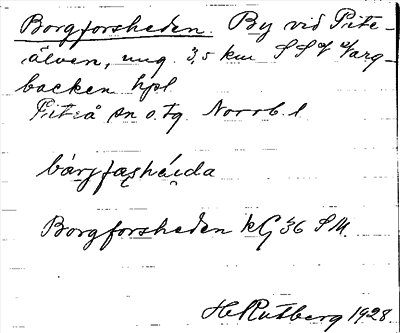 Borgforsheden. By vid Pite-
älven, ung. 3,5 km SSV Varg-
backen hpl
Piteå sn o. tg. Norrb. l.
Borgforsheden kG 36 SM.
H Rutberg 1928